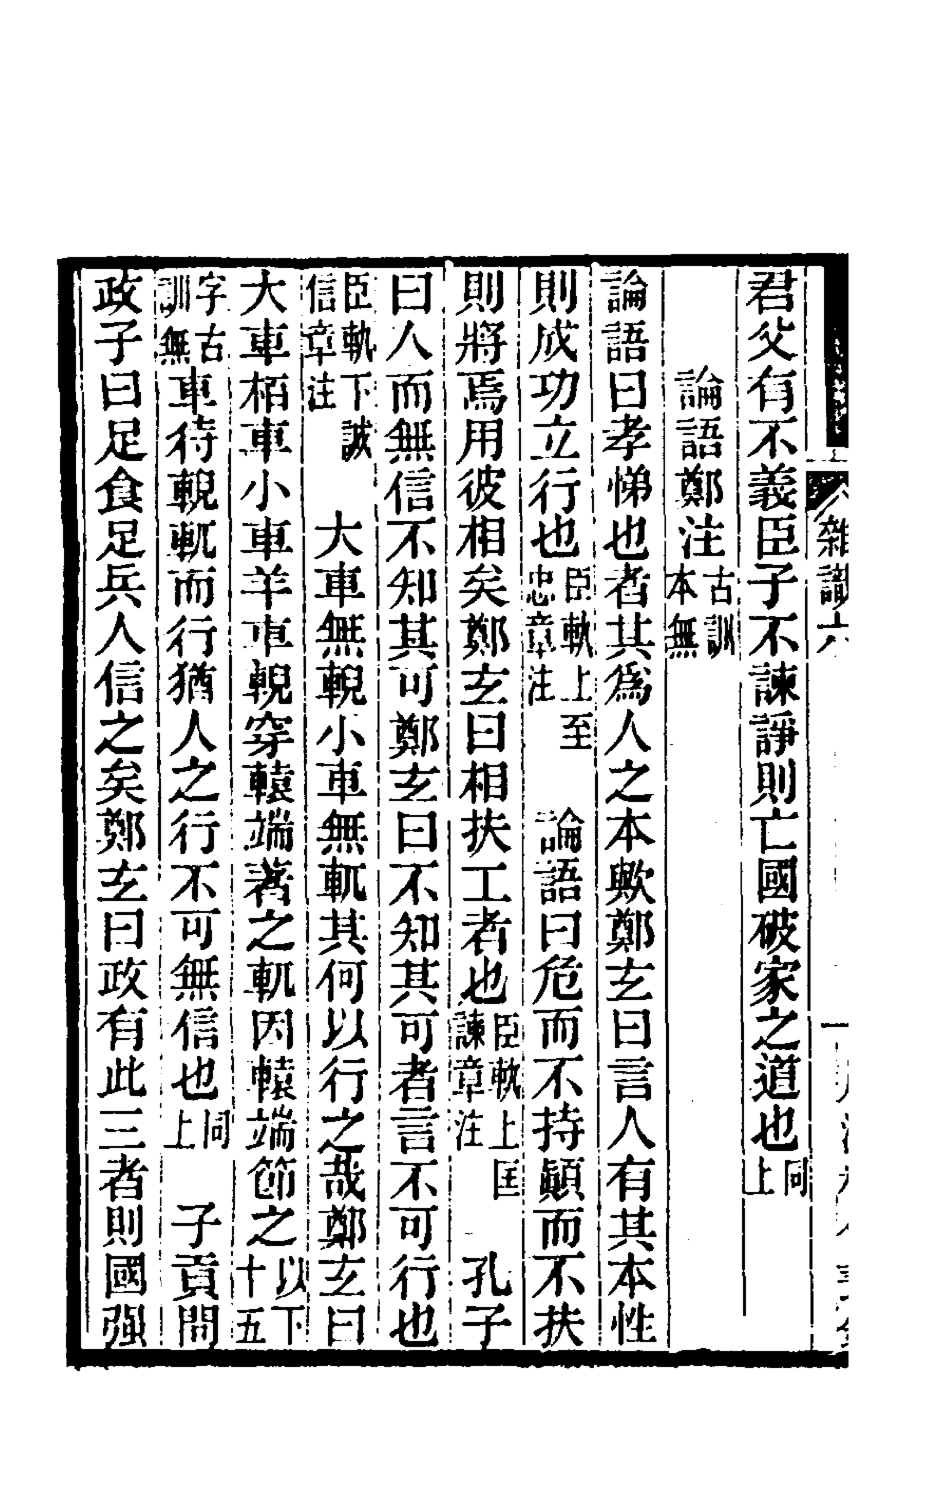 雜識六
君父有不義臣子不諫諍則亡國破家之道也同上
論語鄭注古訓本無
論語曰孝悌也者其爲人之本歟鄭玄曰言人有其本性
則成功立行也臣軌上至忠章注　論語曰危而不持顚而不扶
則將焉用彼相矣鄭玄曰相扶工者也臣軌上匡諫章注　孔子
曰人而無信不知其可鄭玄曰不知其可者言不可行也
臣軌下誠信章注　大車無輗小車無軏其何以行之哉鄭玄曰
大車栢車小車羊車輗穿轅端著之軏因轅端節之以下十五
字古訓無車待輗軏而行猶人之行不可無信也同上　子貢問
政子曰足食足兵人信之矣鄭玄曰政有此三者則國强